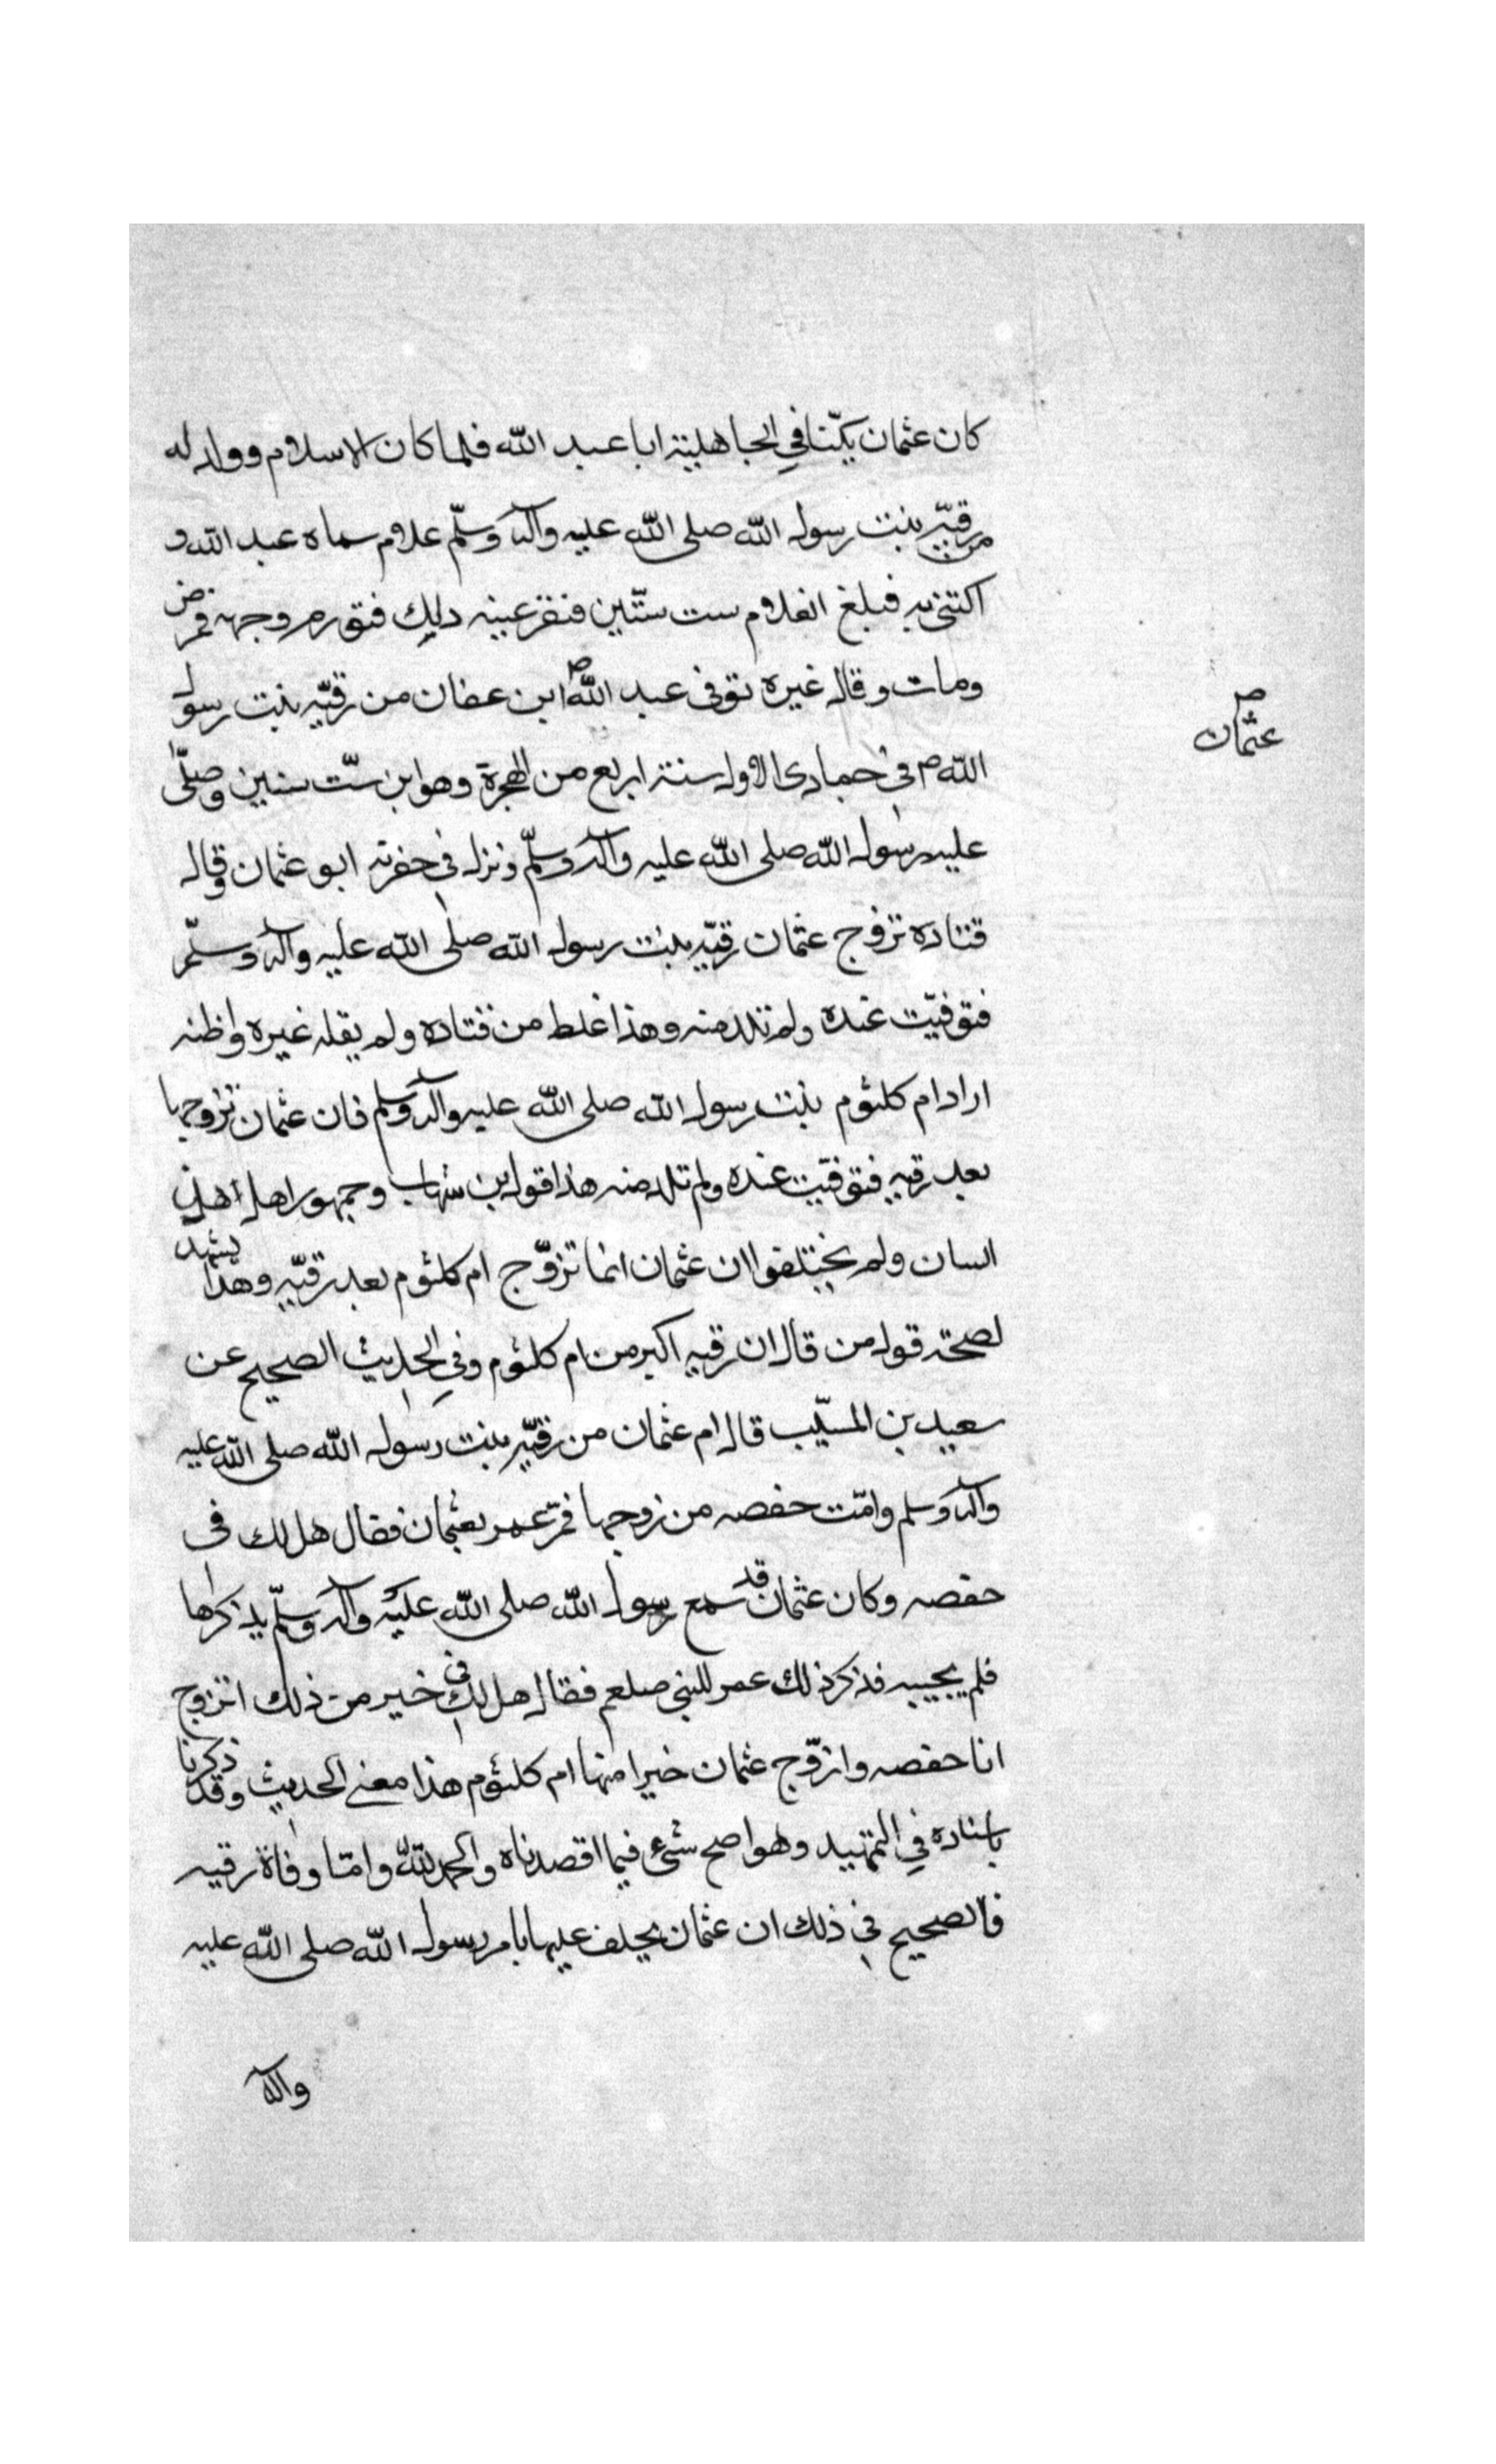 كان عثمان يكنّا في الجاهلية ابا عبد الله فلما كان الاسلام وولد له
من رقيّه بنت رسول الله صلى الله عليه وآله وسلّم علام سماه عبد الله و
اكتنى به فبلغ الغلام ست سنّين فنقر عينه ديك فتورم وجهه فمرض
ومات وقال غيره توفى عبد الله ابن عفان من رقيّه بنت رسول
عثمان
الله ص في جمادى الاول سنة اربع من الهجرة وهو ابن ستّ سنين وصلّى
عليه رسول الله صلى الله عليه وآله وسلّم ونزل في حفرته ابو عثمان وقال
قتاده تزوج عثمان رقيّه بنت رسول الله صلى الله عليه وآله وسلّم
فتوفيّت عنده ولم تلد منه وهذا غلط من قتاده ولم يقله غيره واظنه
اراد ام كلثوم بنت رسول الله صلى الله عليه وآله وسلم فان عثمان تزوجها
بعد رقيه فتوفيّت عنده ولم تلد منه هذا قول بن شهاب وجمهور اهل اهل
السان ولم يختلفوا ان عثمان انما تزوّج ام كلثوم بعد رقيّه وهذا يشهد
لصحة قول من قال ان رقيه اكبر من ام كلثوم وفي الحديث الصحيح عن
سعيد بن المسيّب قال ام عثمان من رقيّه بنت رسول الله صلى الله عليه
وآله وسلم وامّت حفصه من زوجها فمرّ عمر بعثمان فقال هل لك فى
حفصه وكان عثمان قد سمع رسول الله صلى الله عليه وآله وسلّم يذكرها
فلم يجيبه فذكر ذلك عمر للنبى صلعم فقال هل لك في خير من ذلك اتزوج
انا حفصه وازوّج عثمان خيرا منها ام كلثوم هذا معنى الحديث وقد ذكرنا
باسناده في التمهيد وهو اصح شئ فيما اقصدناه والحمد لله وامّا وفاة رقيه
فالصحيح في ذلك ان عثمان يخلف عليها بامر رسول الله صلى الله عليه
وآله